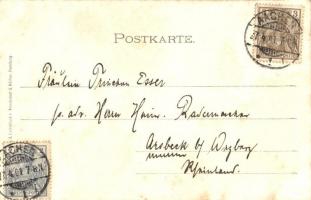 POSTKARTE.
AACHEN
Fräulein Trinchen Esser
pr. adr. Herrn Heinr. Rademacher
Arsbeck b/ Wegberg
Rheinland.
AACHEN